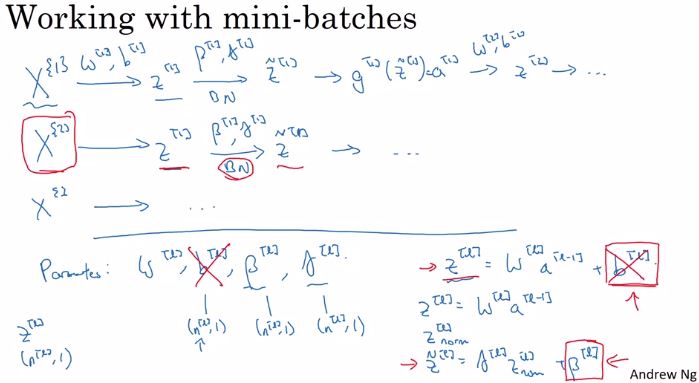 Working with mini-batches
X^{1} → W^[1], b^[1] → z^[1] → β^[1], γ^[1] BN → z̃^[1] → g^[1](z̃^[1]) = a^[1] → W^[2], b^[2] → z^[2] → ...
X^{2} → z^[1] → β^[1], γ^[1] BN → z̃^[1] → ...
X^{3} → ...
Parameters: W^[l], b^[l], β^[l], γ^[l].
z^[l] (n^[l], 1)
(n^[l], 1) (n^[l], 1) (n^[l], 1)
→ z^[l] = W^[l] a^[l-1] + b^[l]
z^[l] = W^[l] a^[l-1]
z^[l]_norm
→ z̃^[l] = γ^[l] z^[l]_norm + β^[l] ←
Andrew Ng